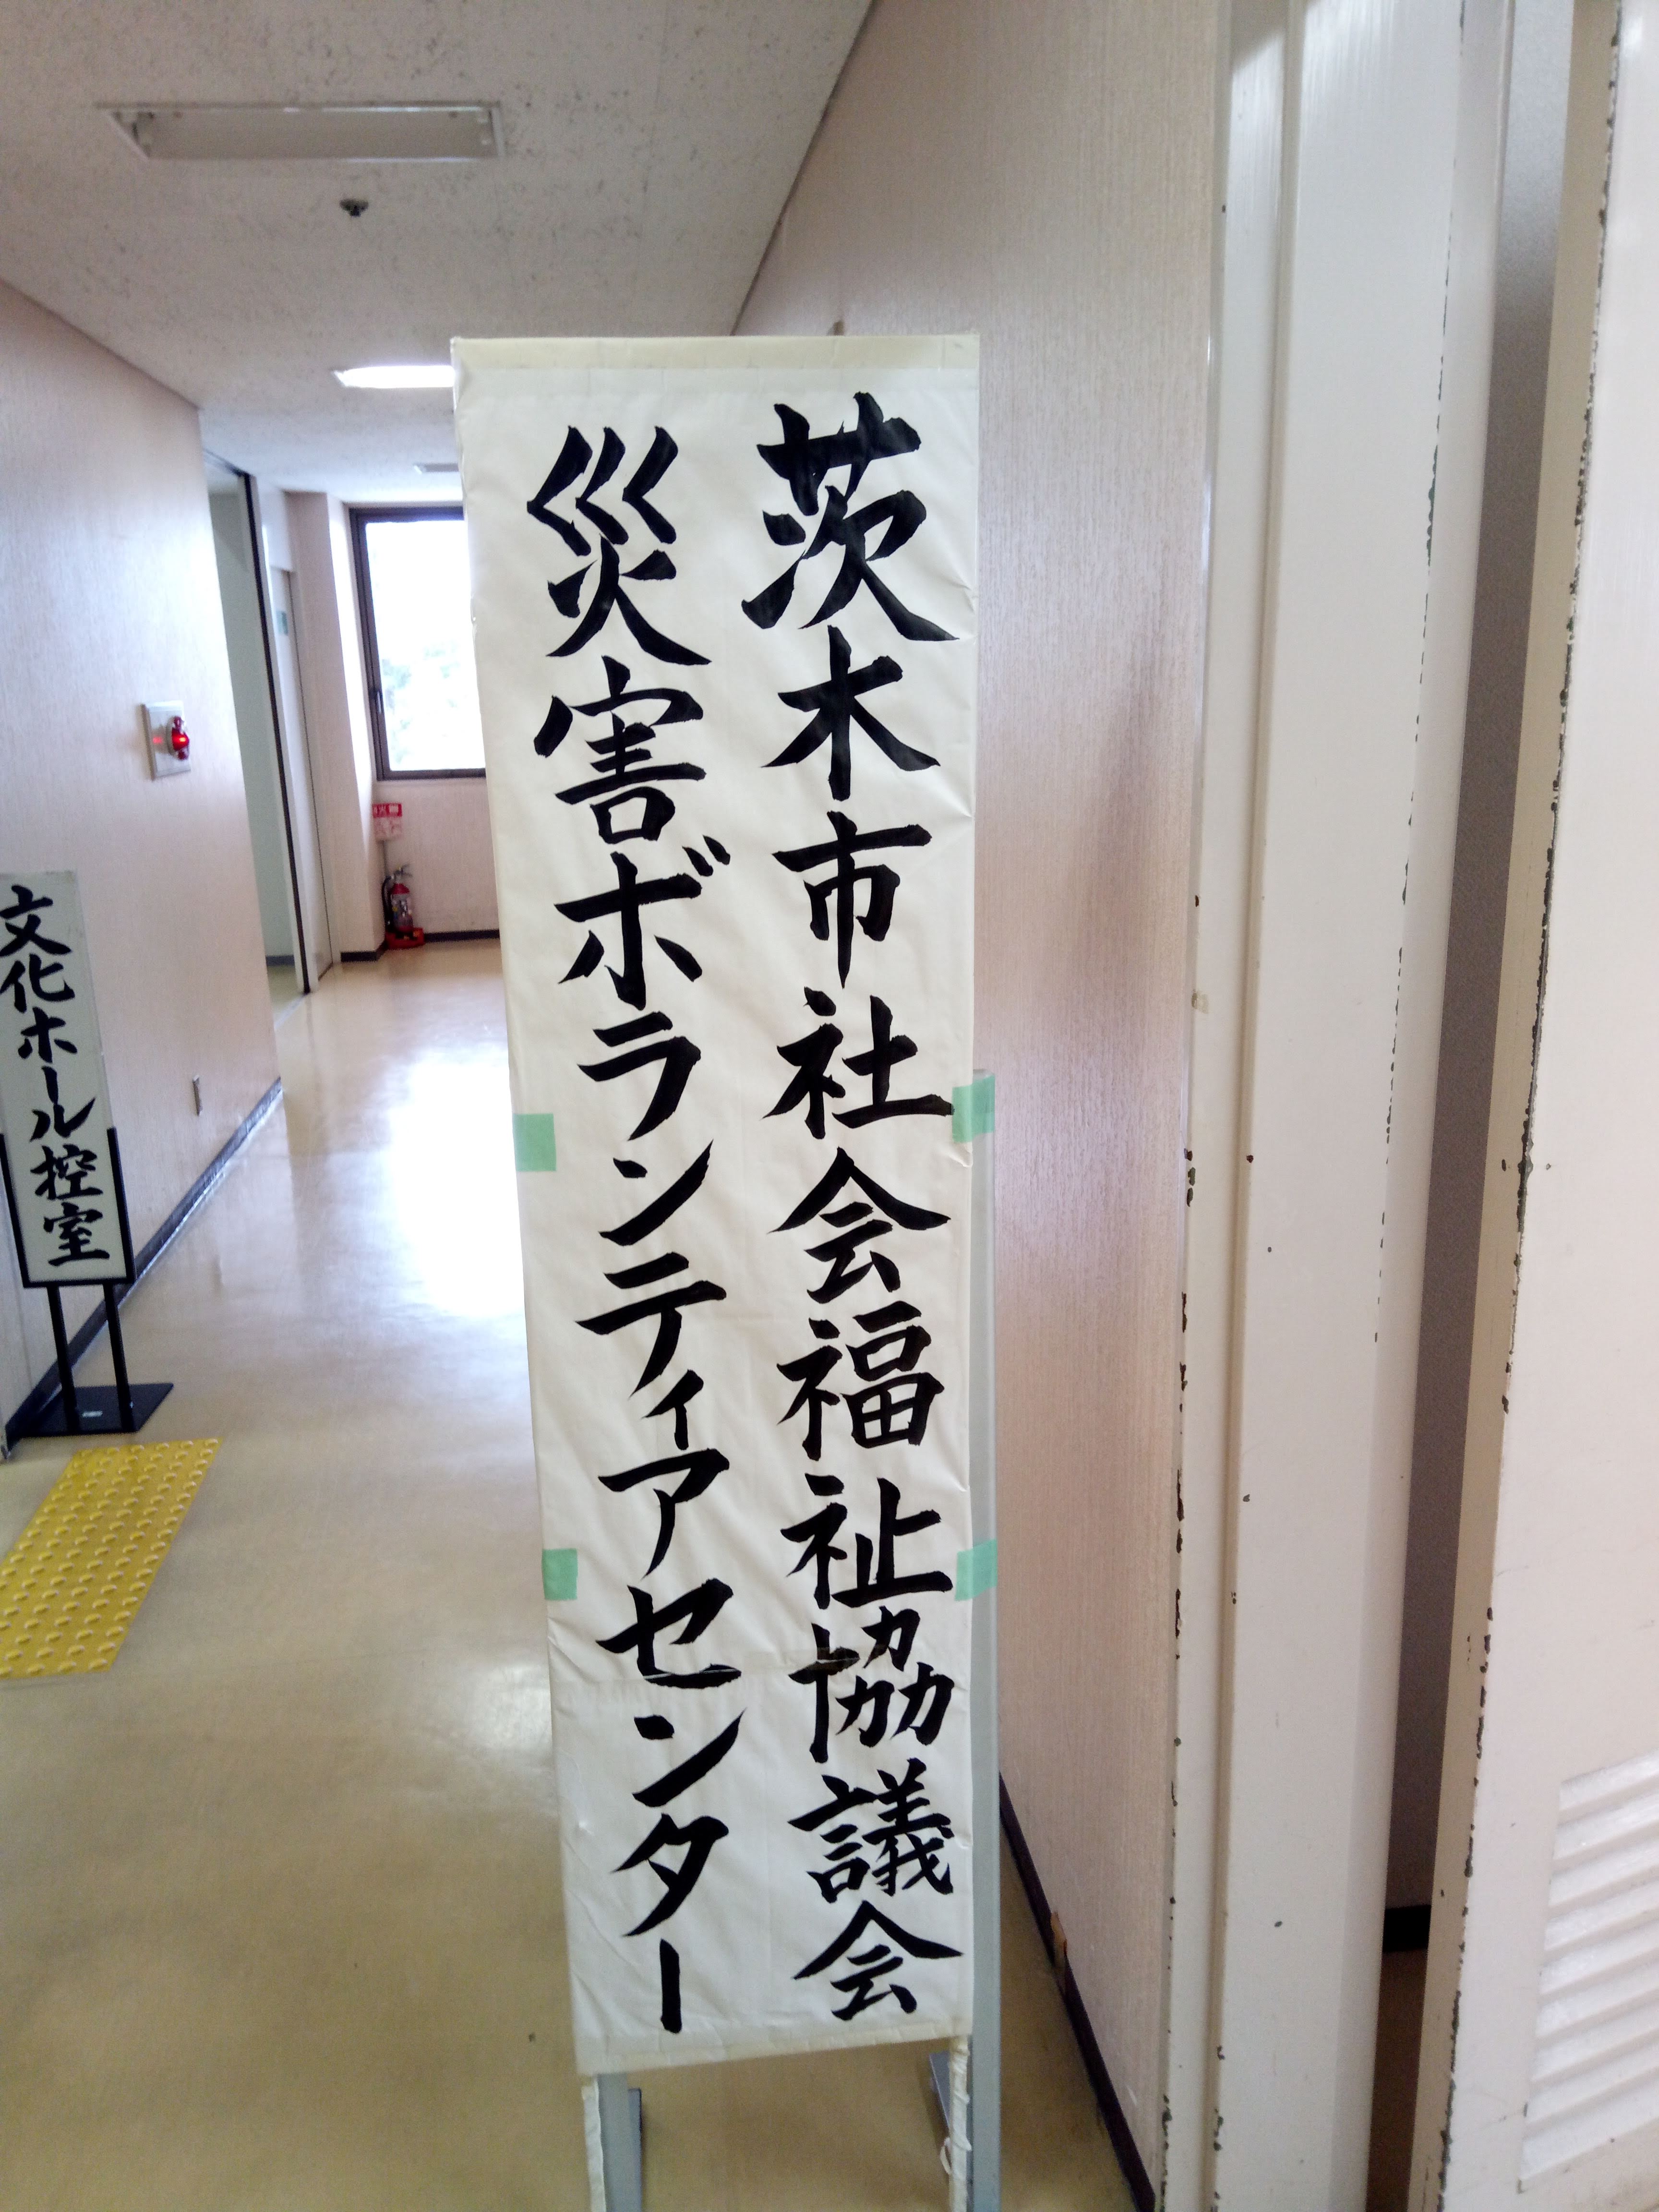 茨木市社会福祉協議会
災害ボランティアセンター
文化ホール控室